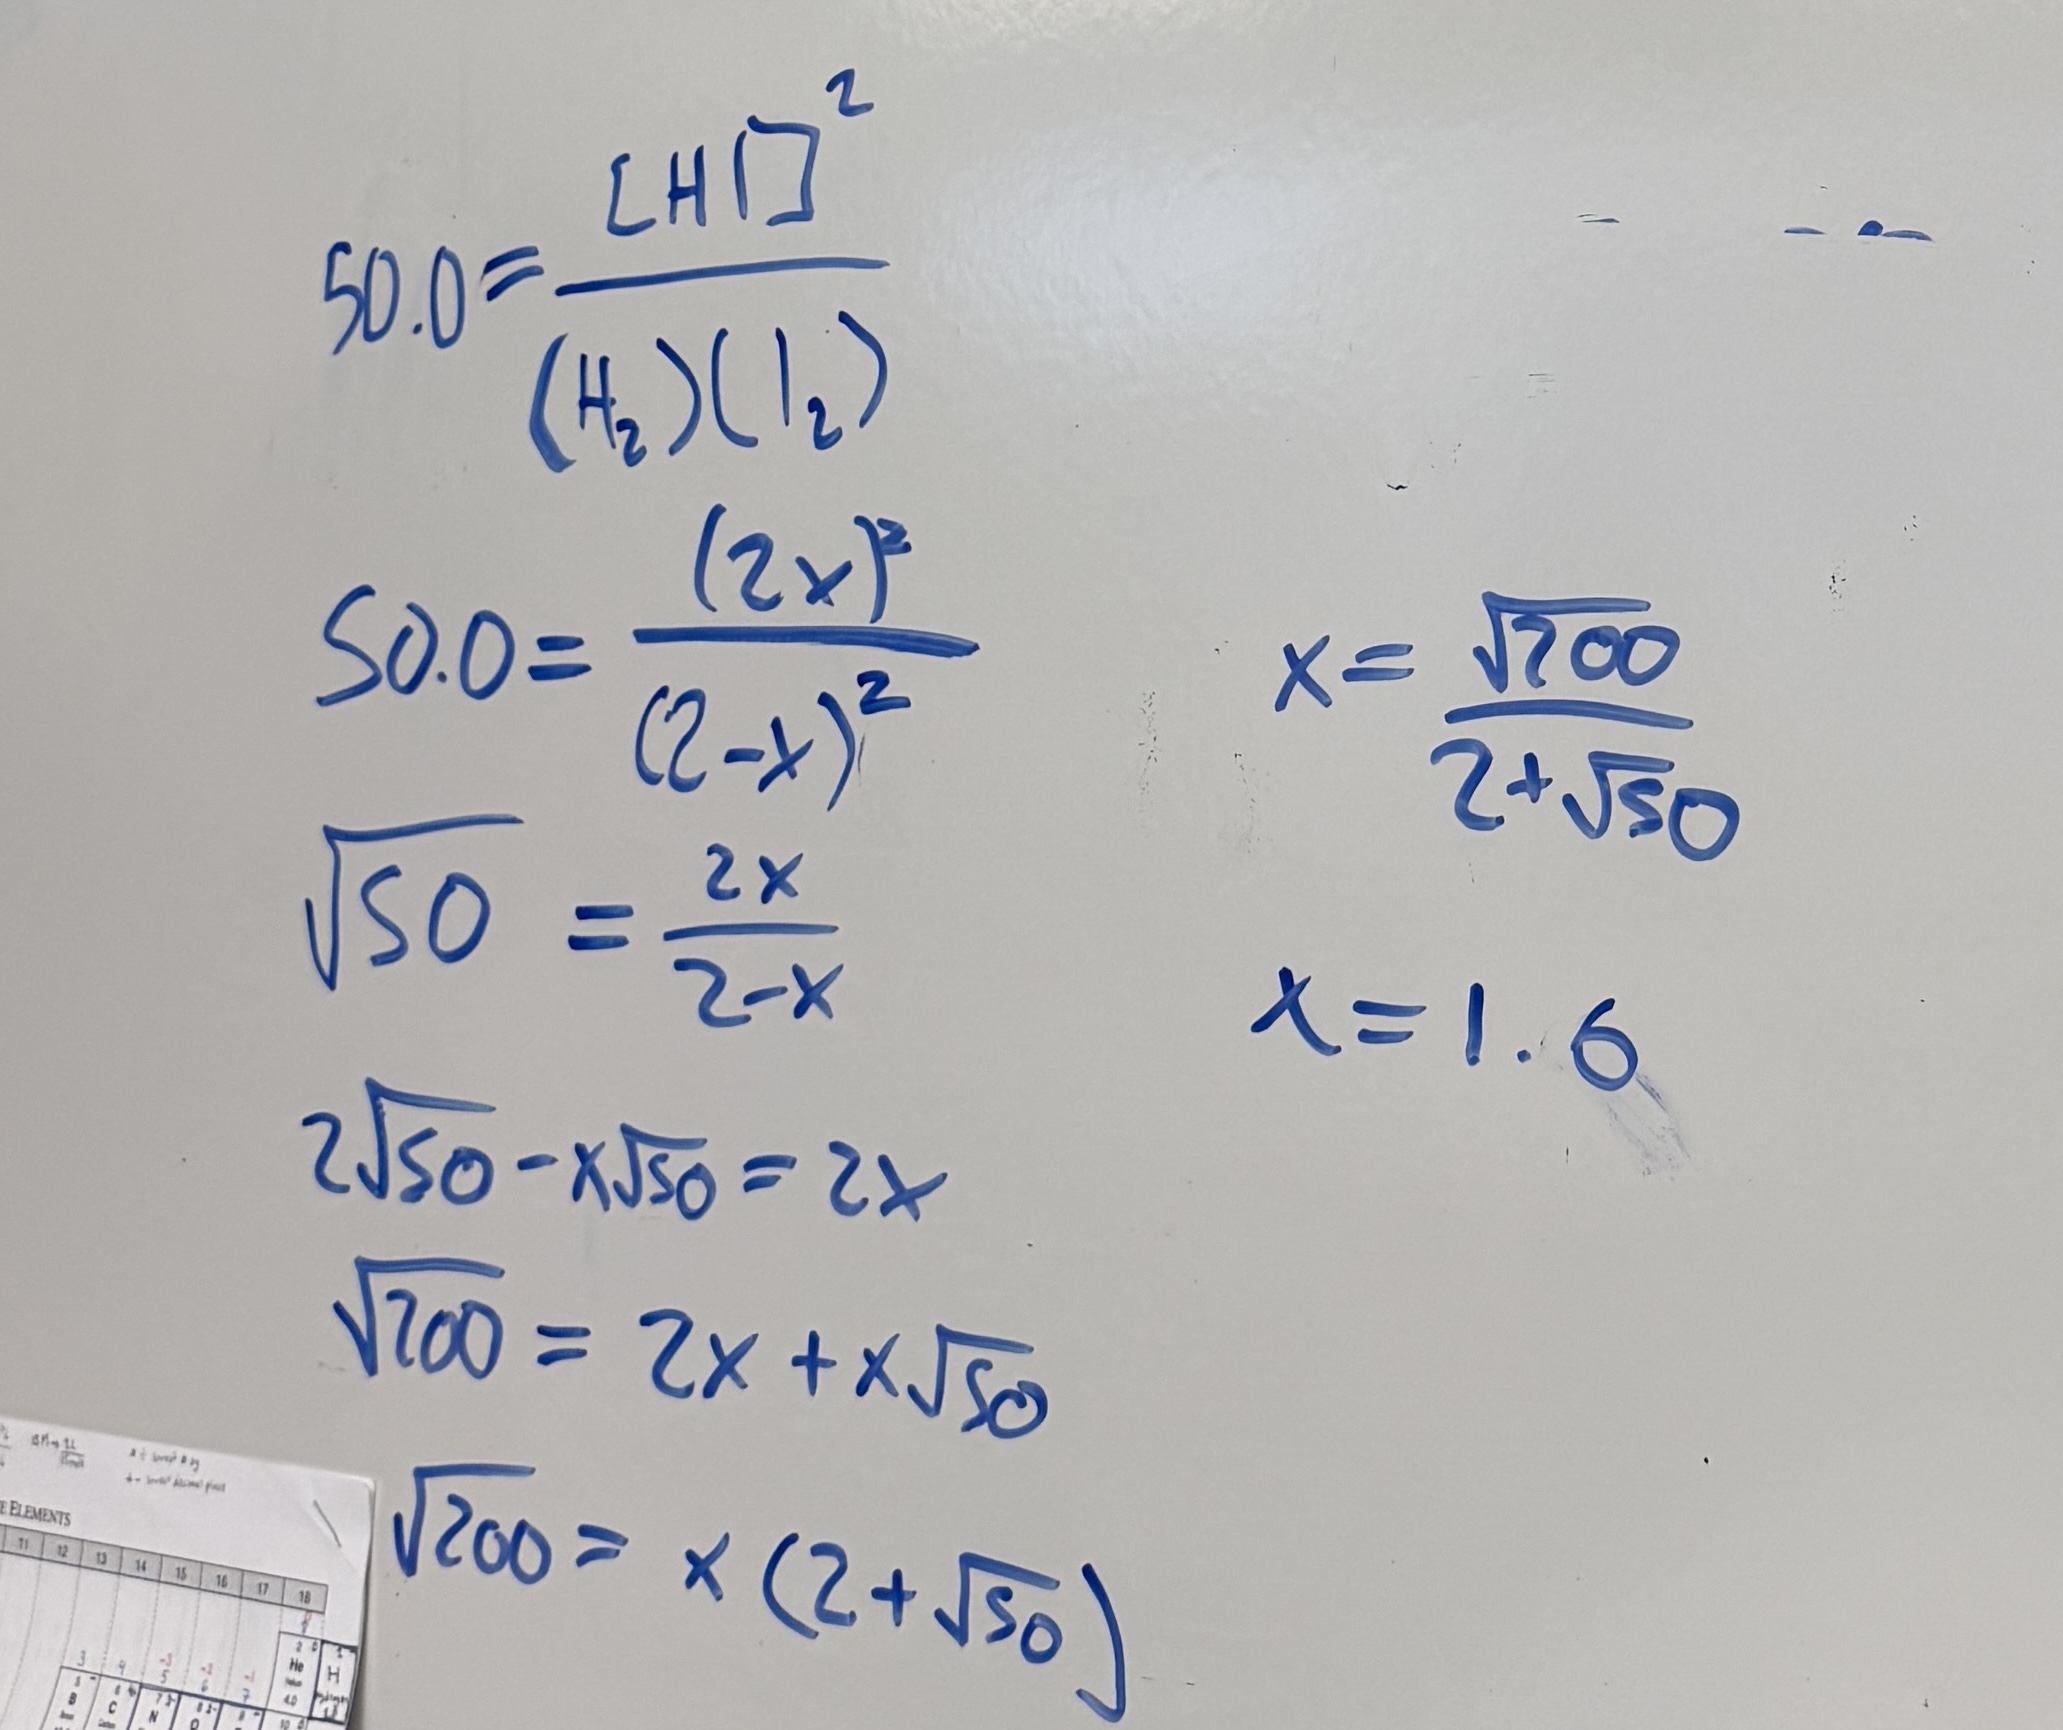 50.0 = [HI]² / (H₂)(I₂)
50.0 = (2x)² / (2-x)²
√50 = 2x / 2-x
2√50 - x√50 = 2x
√200 = 2x + x√50
√200 = x(2+√50)
x = √200 / 2+√50
x = 1.6
E ELEMENTS
11 12 13 14 15 16 17 18
3 4 -3 -2 -1
5 6 7
2 He 4.0
H
5 B
6 C
7 N
8 O
10